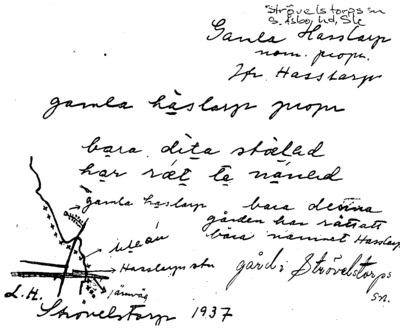 Strövelstorps sn
S. Åsbo hd, Sk
Gamla Hasslarp
nom. propr.
Jfr Hasslarp
gamla haslarp propr
bara dita stæled
har ræt te nåned
gamla haslarp
bara denna
gården har rätt att
bära namnet Hasslarp
Hasslarps stn
gård i Strövelstorps
sn.
järnväg
L. H.
Strövelstorp 1937